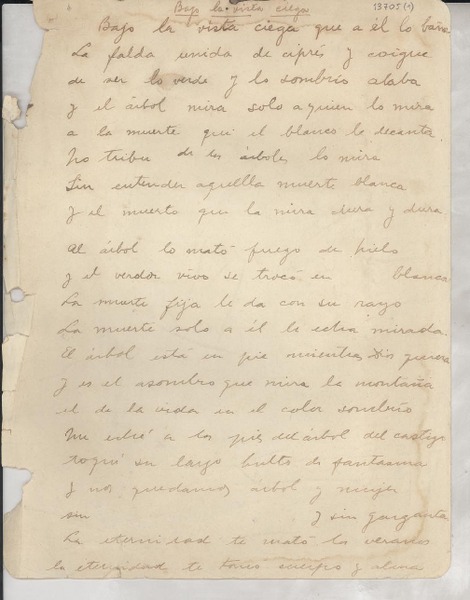 Bajo la vista ciega
13705 (1)
Bajo la vista ciega que a él lo baña
La falda unida de ciprés y coigüe
de ser lo verde y lo sombrío alaba
y el árbol mira solo a quien lo mira
a la muerte que el blanco le decanta.
La tribu de los árboles lo mira
Sin entender aquella muerte blanca
y el muerto que la mira dura y dura
Al árbol lo mató fuego de hielo
y el verdor vivo se trocó en blanca
La muerte fija le da con su rayo
La muerte solo a él le echa mirada
El árbol está en pie mientras Dios quiera
y es el asombro que mira la montaña
el de la vida en el color sombrío
Me eché a los pies del árbol del castigo
toqué su largo bulto de fantasma
y nos quedamos árbol y mujer
sin y sin garganta
La eternidad te mató los veranos
la eternidad te tomó cuerpo y alma